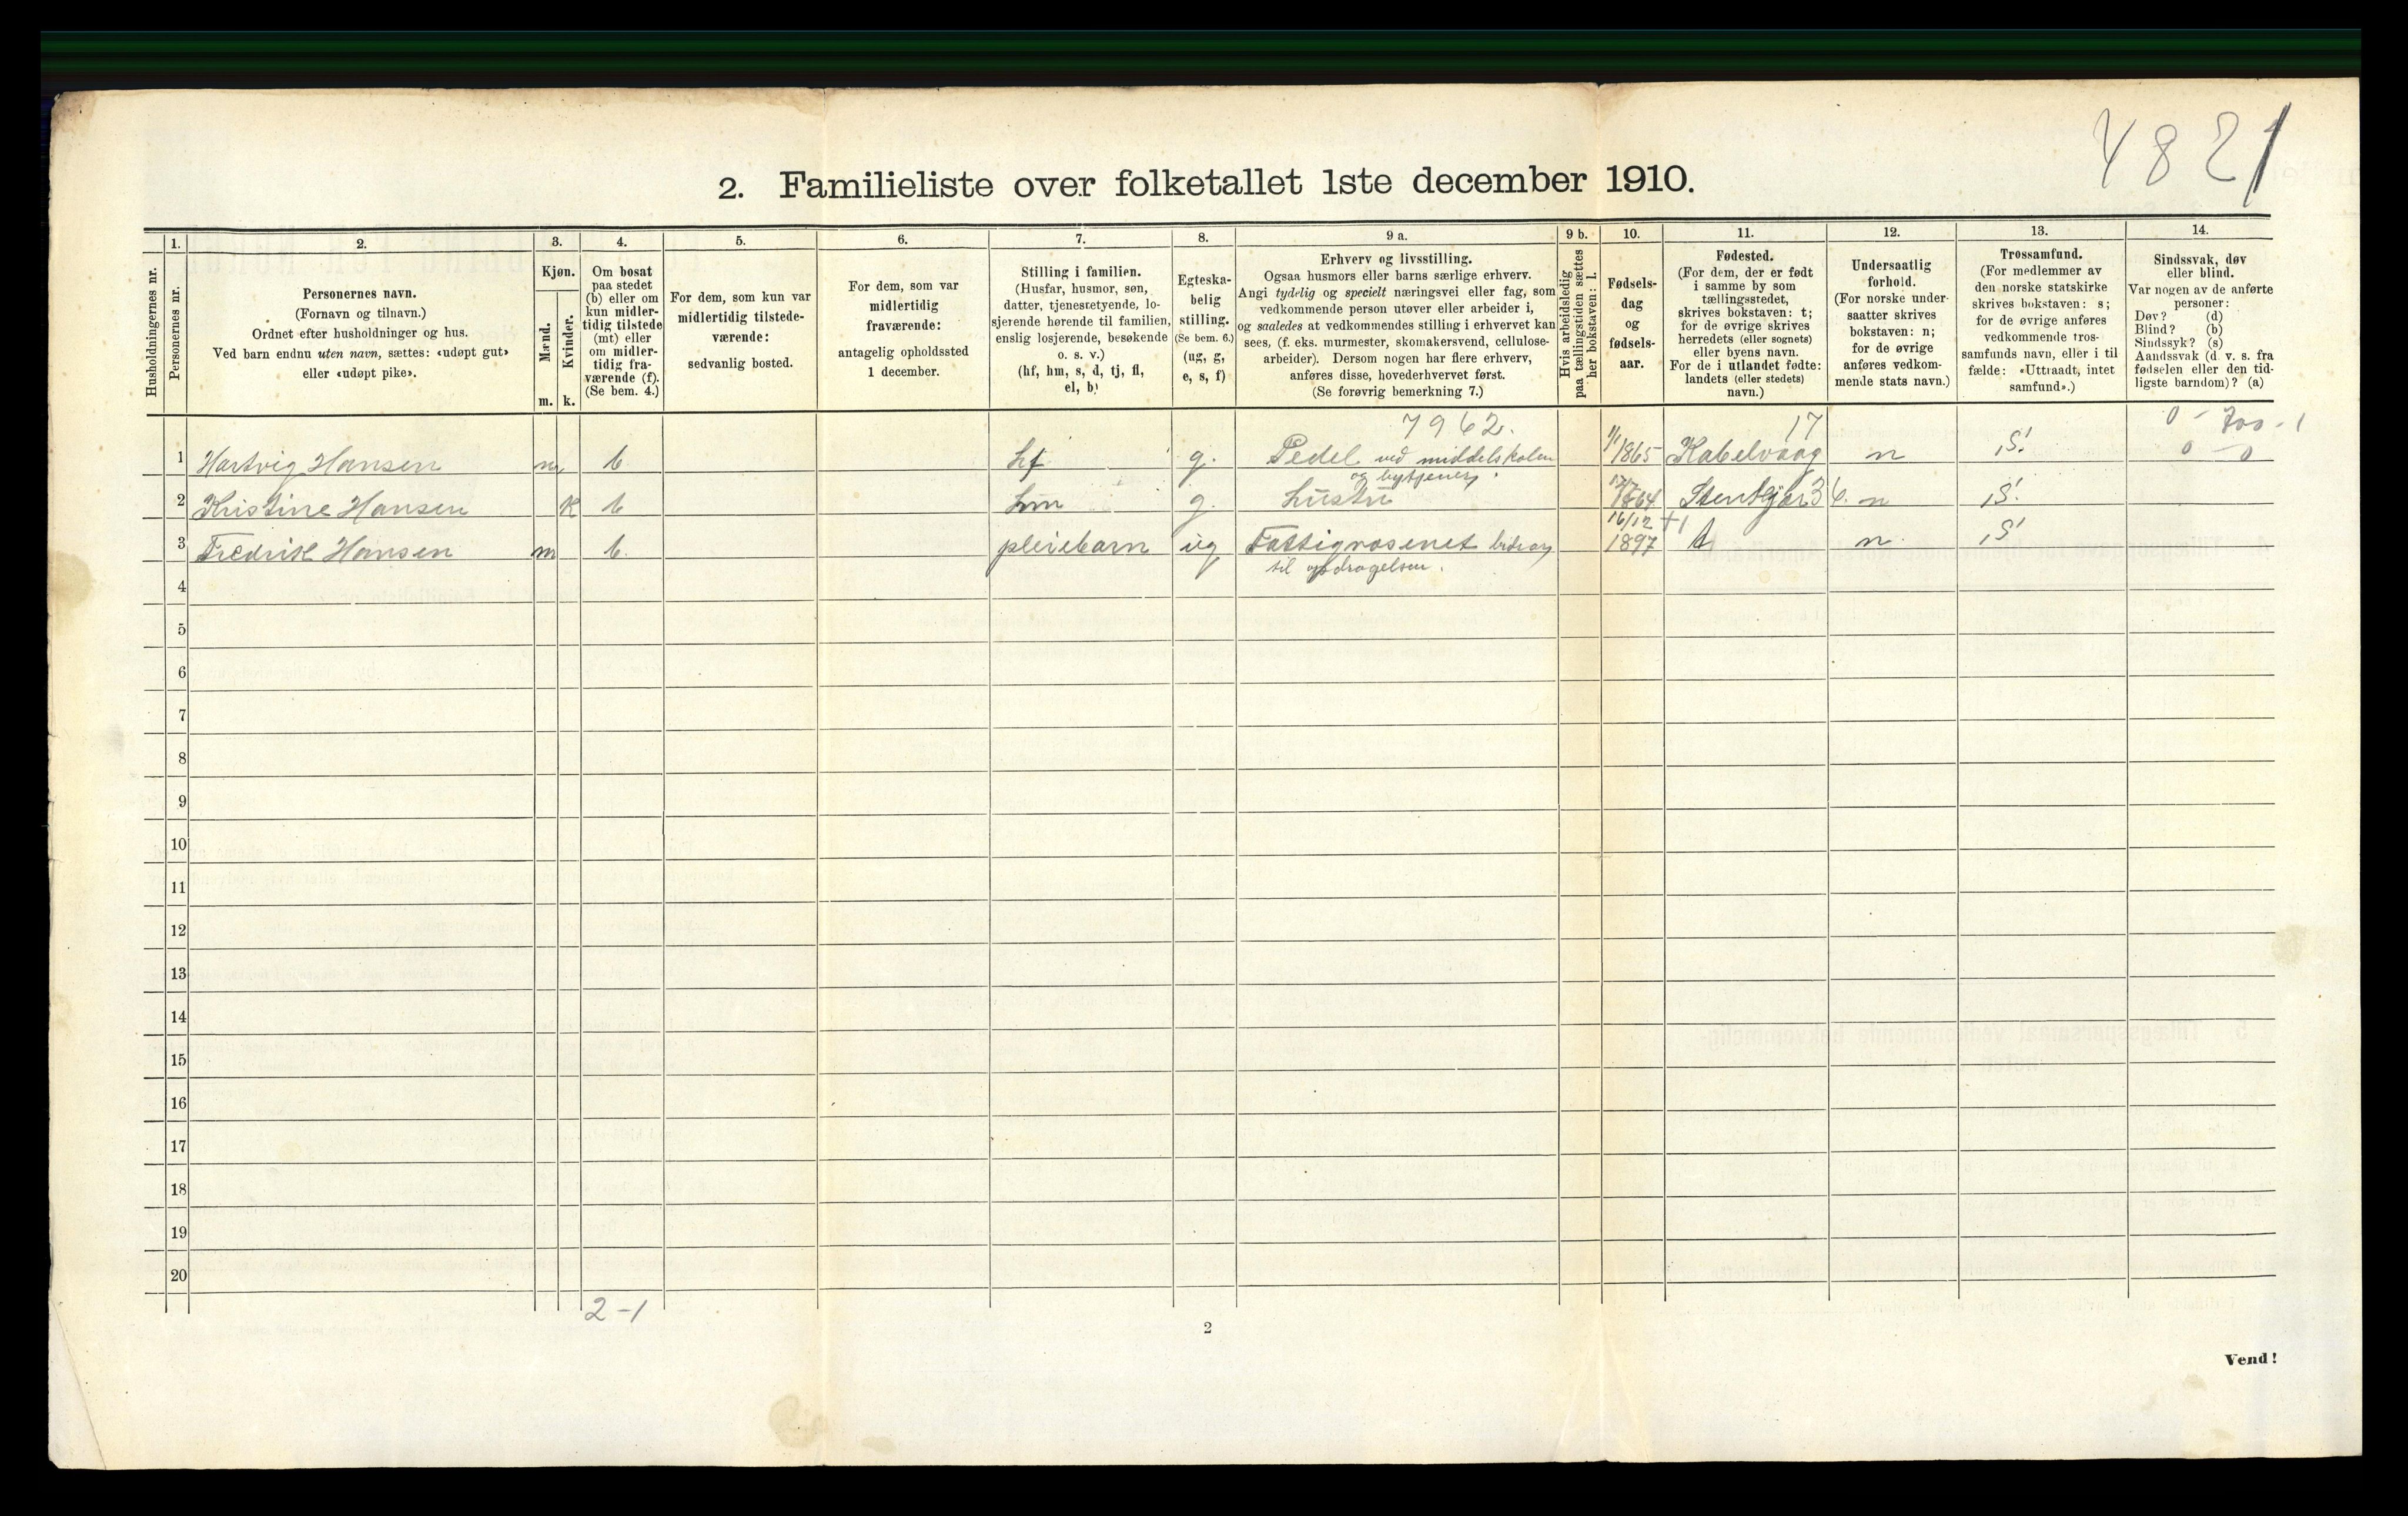 4821
2. Familieliste over folketallet 1ste december 1910.
Husholdningernes nr.
1.
Personernes nr.
2.
Personernes navn.
(Fornavn og tilnavn.)
Ordnet efter husholdninger og hus.
Ved barn endnu uten navn, sættes: «udøpt gut»
eller «udøpt pike».
3.
Kjøn.
Mænd.
Kvinder.
m. k.
4.
Om bosat
paa stedet
(b) eller om
kun midler-
tidig tilstede
(mt) eller
om midler-
tidig fra-
værende (f).
(Se bem. 4.)
5.
For dem, som kun var
midlertidig tilstede-
værende:
sedvanlig bosted.
6.
For dem, som var
midlertidig
fraværende:
antagelig opholdssted
1 december.
7.
Stilling i familien.
(Husfar, husmor, søn,
datter, tjenestetyende, lo-
sjerende hørende til familien,
enslig losjerende, besøkende
o. s. v.)
(hf, hm, s, d, tj, fl,
el, b)
8.
Egteska-
belig
stilling.
(Se bem. 6.)
(ug, g,
e, s, f)
9 a.
Erhverv og livsstilling.
Ogsaa husmors eller barns særlige erhverv.
Angi tydelig og specielt næringsvei eller fag, som
vedkommende person utøver eller arbeider i,
og saaledes at vedkommendes stilling i erhvervet kan
sees, (f. eks. murmester, skomakersvend, cellulose-
arbeider). Dersom nogen har flere erhverv,
anføres disse, hovederhvervet først.
(Se forøvrig bemerkning 7.)
9 b.
Hvis arbeidsledig
paa tællingstiden sættes
her bokstaven: l.
10.
Fødsels-
dag
og
fødsels-
aar.
11.
Fødested.
(For dem, der er født
i samme by som
tællingsstedet,
skrives bokstaven: t;
for de øvrige skrives
herredets (eller sognets)
eller byens navn.
For de i utlandet fødte:
landets (eller stedets)
navn.)
12.
Undersaatlig
forhold.
(For norske under-
saatter skrives
bokstaven: n;
for de øvrige
anføres vedkom-
mende stats navn.)
13.
Trossamfund.
(For medlemmer av
den norske statskirke
skrives bokstaven: s;
for de øvrige anføres
vedkommende tros-
samfunds navn, eller i til
fælde: «Uttraadt, intet
samfund».)
14.
Sindssvak, døv
eller blind.
Var nogen av de anførte
personer:
Døv? (d)
Blind? (b)
Sindssyk? (s)
Aandssvak (d. v. s. fra
fødselen eller den tid-
ligste barndom)? (a)
7962. 17 0 - 700 - 1
1 Hartvig Hansen m b hf g. Pedel ved middelskolen 1/1 1865 Kabelvaag n S. 0 0
og bytjener.
2 Kristine Hansen k b hm g. hustru 1864 Stenkjær 36. n S.
3 Fredrik Hansen m b. pleiebarn ug Fattigvæsenet bidrag 16/12 1897 +1 t n. S
til opdragelsen.
4
5
6
7
8
9
10
11
12
13
14
15
16
17
18
19
20
2-1
2
Vend!